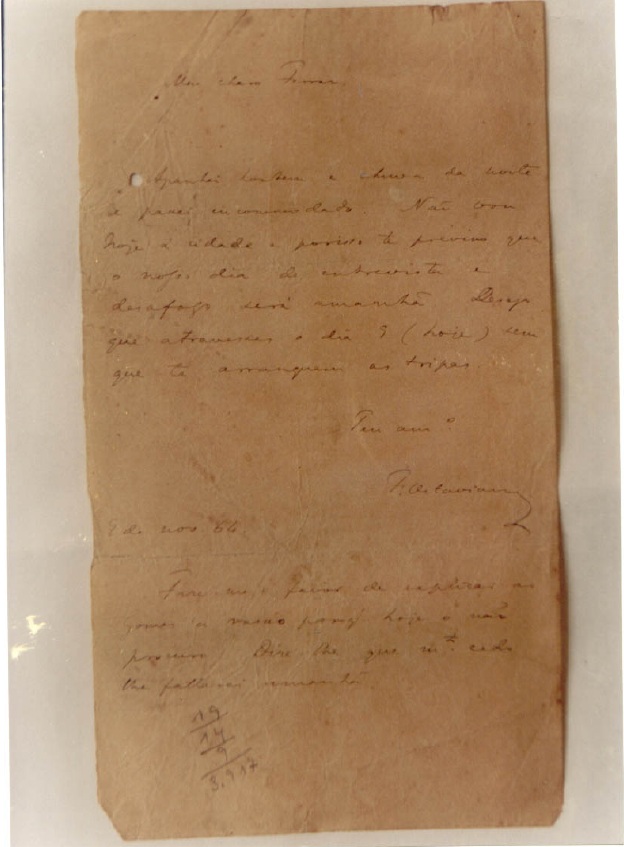 Meu charo Ferraz.
Apanhei hontem a chuva da noite
e passei incommodado. Não vou
hoje á cidade e por isso te previno que
o nosso dia de entrevista e
desafogo será amanhã. Desejo
que atravesses o dia 9 (hoje) sem
que te arranquem as tripas.
Teu am.º
F. Octaviano
9 de nov 64.
Faze-me o favor de explicar ao
a razão porq hoje o não
procuro. Dize-lhe que m.to cedo
lhe fallarei amanhã.
19
14
9
8.917